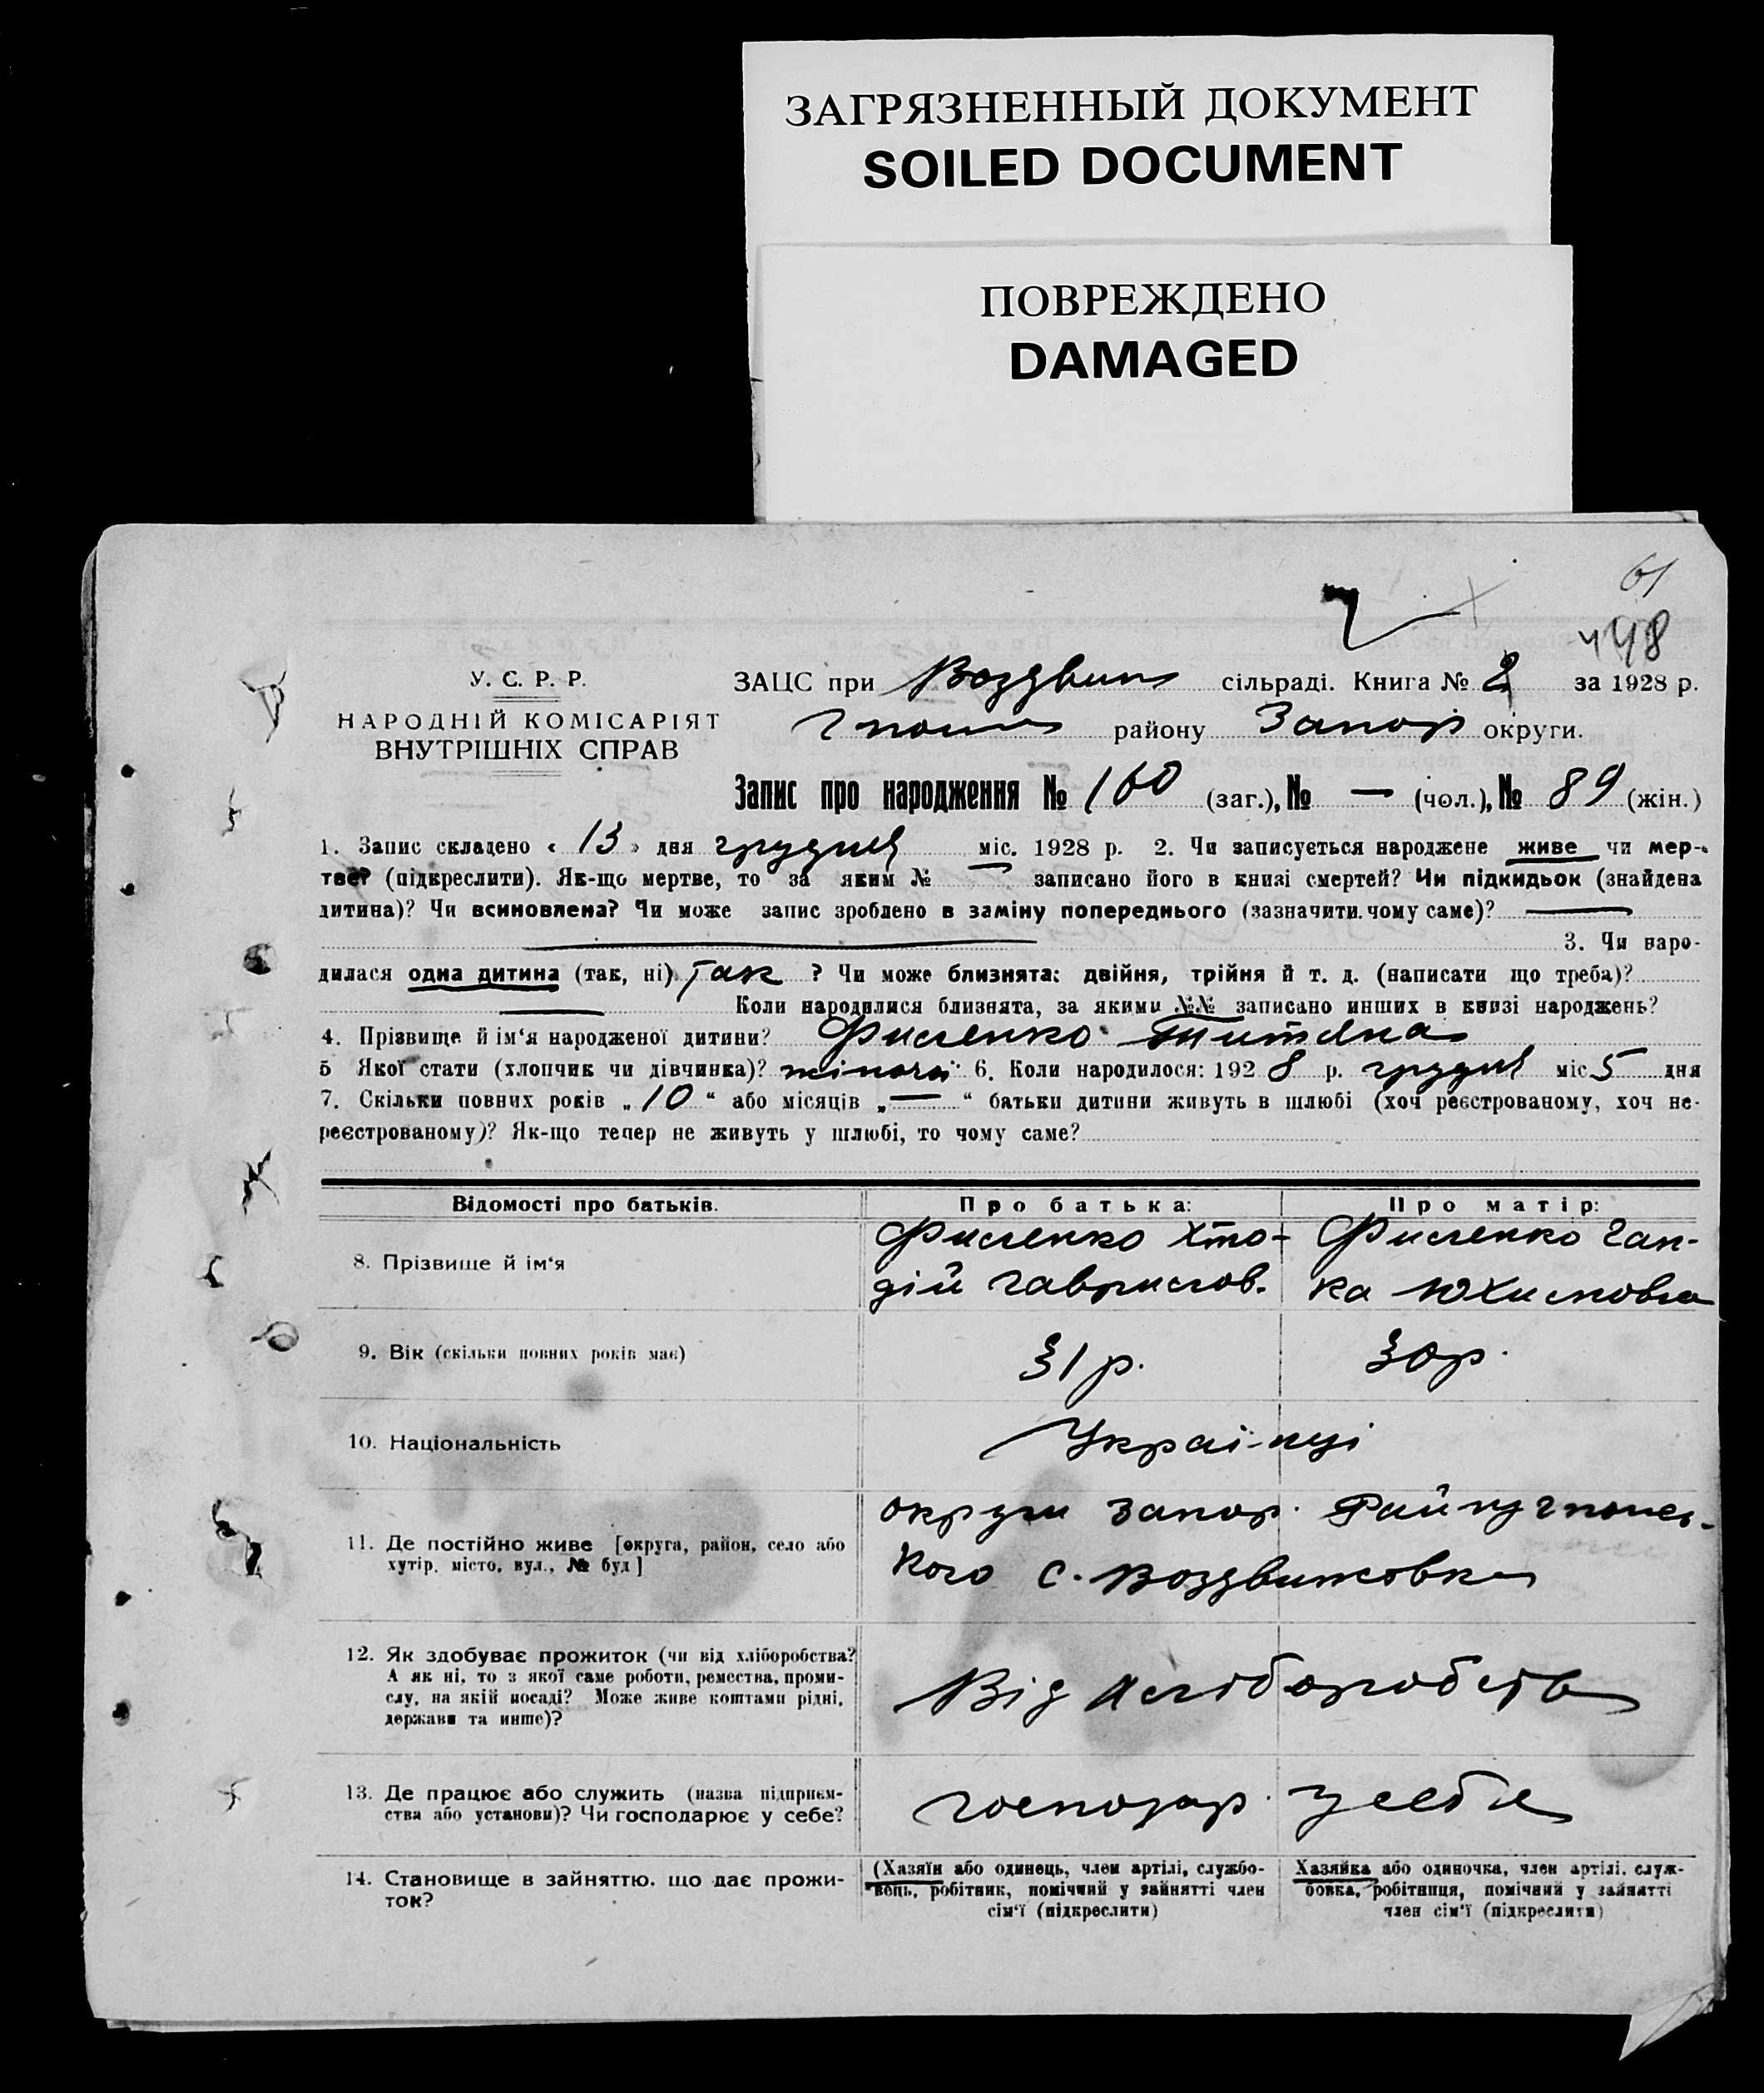 ЗАГРЯЗНЕННЫЙ ДОКУМЕНТ
SOILED DOCUMENT
ПОВРЕЖДЕНО
DAMAGED
61
448
У. С. Р. Р.
НАРОДНІЙ КОМІСАРІЯТ
ВНУТРІШНІХ СПРАВ
ЗАЦС при Воздвиж сільраді. Книга № 2 за 1928 р.
району Запор округи.
Запис про народження № 160 (заг.), № — (чол.), № 89 (жін.)
1. Запис складено « 13 » дня грудня міс. 1928 р. 2. Чи записується народжене живе чи мер-
тве? (підкреслити). Як-що мертве, то за яким № — записано його в книзі смертей? Чи підкидьок (знайдена
дитина)? Чи всиновлена? Чи може запис зроблено в заміну попереднього (зазначити чому саме)? —
3. Чи наро-
дилася одна дитина (так, ні) Так ? Чи може близнята: двійня, трійня й т. д. (написати що треба)?
Коли народилися близнята, за якими №№ записано инших в книзі народжень?
4. Прізвище й ім'я народженої дитини? Фисенко Титяна
5 Якої статі (хлопчик чи дівчинка)? жіночої 6. Коли народилося: 1928 р. грудня міс 5 дня
7. Скільки повних років „ 10 “ або місяців „ — “ батьки дитини живуть в шлюбі (хоч реєстрованому, хоч не-
реєстрованому)? Як-що тепер не живуть у шлюбі, то чому саме?
Відомості про батьків. Про батька: Про матір:
8. Прізвище й ім'я
Фисенко Хто-
дій Гаврилов.
Фисенко Ган-
ка Юхимовна
9. Вік (скільки повних років має) 31 р. 30 р.
10. Національність Україінці
11. Де постійно живе [округа, район, село або
хутір, місто, вул., № буд]
округи Запор. Райну
кого с. Воздвижовка
12. Як здобуває прожиток (чи від хліборобства?
А як ні, то з якої саме роботи, ремества, проми-
слу, на якій посаді? Може живе коштами рідні,
держави та инше)?
Від хліборобств
13. Де працює або служить (назва підприєм-
ства або установи)? Чи господарює у себе?
господар. у себе
14. Становище в зайняттю, що дає прожи-
ток?
(Хазяїн або одинець, член артілі, службо-
вець, робітник, помічний у зайнятті член
сім'ї (підкреслити)
Хазяйка або одиночка, член артілі, служ-
бовка, робітниця, помічний у зайнятті
член сім'ї (підкреслити)